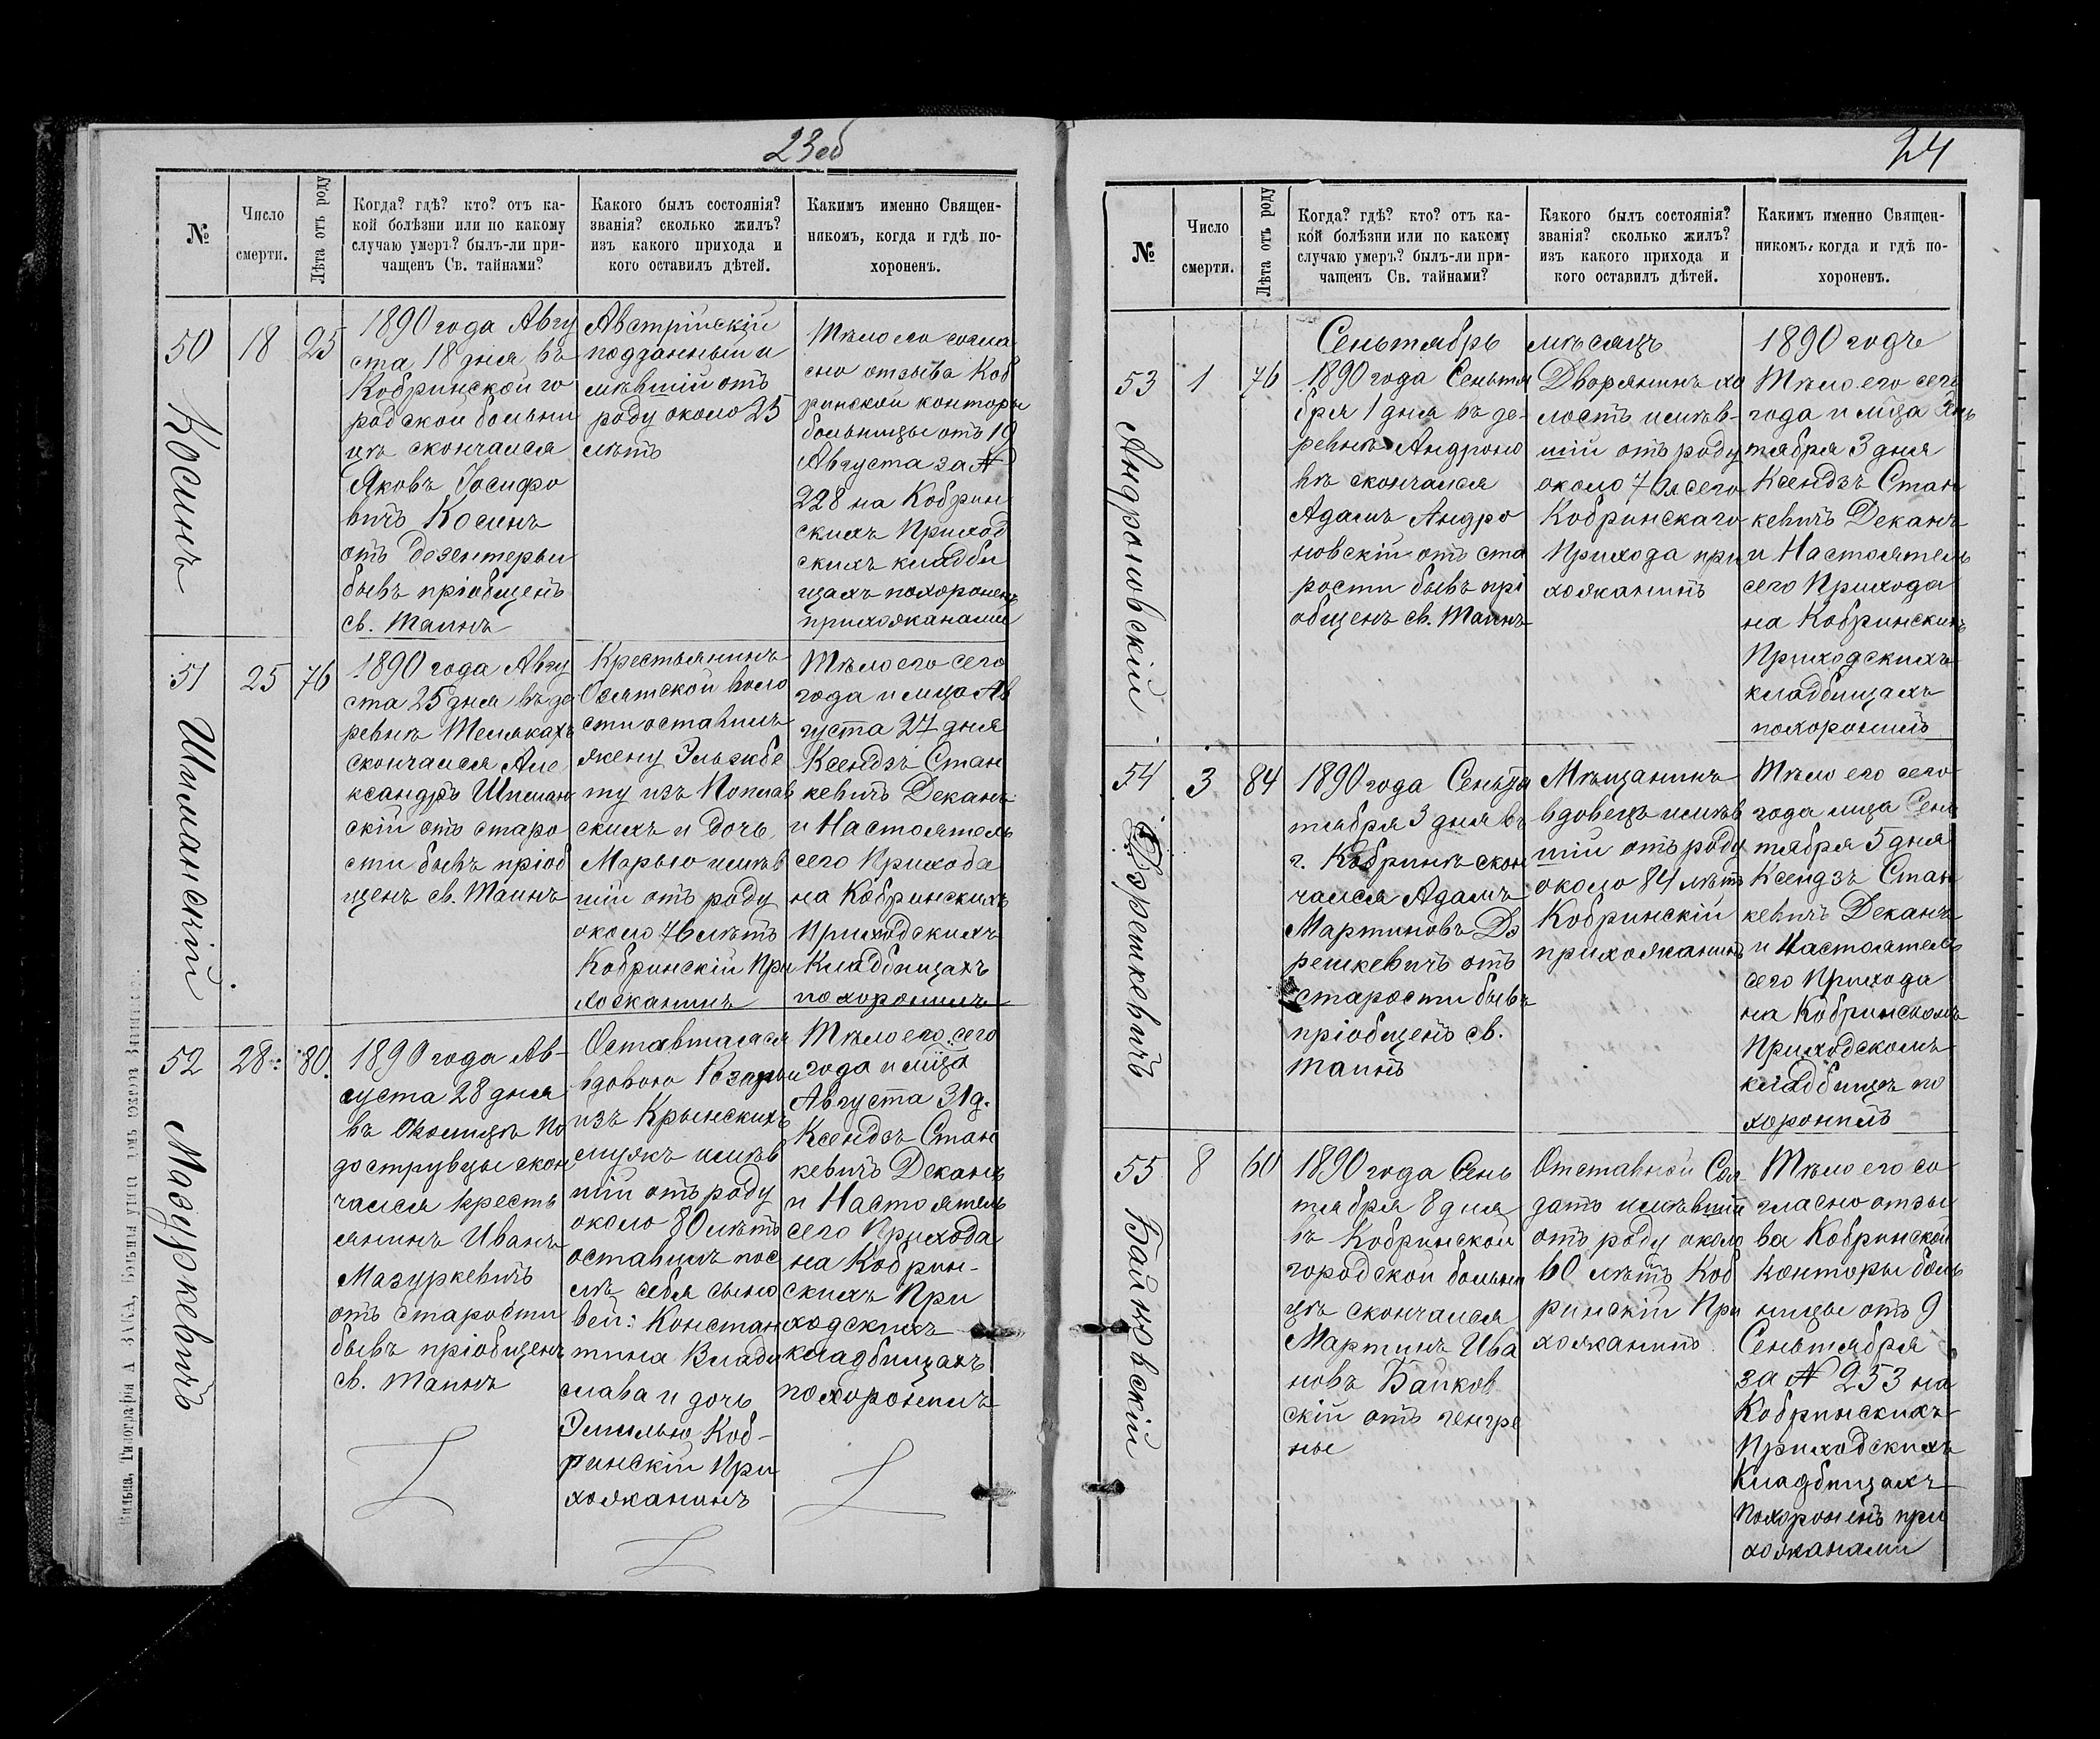 23об
№
Число
смерти.
Лѣта отъ роду
Когда? гдѣ? кто? отъ ка-
кой болѣзни или по какому
случаю умеръ? былъ-ли при-
чащенъ Св. тайнами?
Какого былъ состоянія?
званія? сколько жилъ?
изъ какого прихода и
кого оставилъ дѣтей.
Какимъ именно Священ-
никомъ, когда и гдѣ по-
хороненъ.
50
Косинъ
18
25
1890 года Авгу
ста 18 дня въ
Кобринской го
родской больни
цѣ скончался
Яковъ Іосифо
вичъ Косинъ
отъ дезентеріи
бывъ пріобщенъ
св. Таинъ
Австрійскій
подданный и
мѣвшій отъ
роду около 25
лѣтъ
Тѣло его согла
сно отзыва Коб
ринской конторы
больницы отъ 19
Августа за №
228 на Кобрин
скихъ Приход
скихъ кладби
щахъ похороненъ
прихожанами
51
Шпиманскій
25
76
1890 года Авгу
ста 25 дня въ де
ревнѣ
скончался Але
ксандръ
скій отъ старо
сти бывъ пріоб
щенъ св. Таинъ
Крестьянинъ
Осятской воло
сти оставилъ
жену Эльжбе
ту изъ Поплав
скихъ и дочь
Марью имѣв
шій отъ роду
около 76 лѣтъ
Кобринскій При
хожанинъ
Тѣло его сего
года и мца Ав
густа 27 дня
Ксендзъ Стан
кевичъ Деканъ
и Настоятель
сего Прихода
на Кобринскихъ
Приходскихъ
Кладбищахъ
похоронилъ
52
Мазуркевичъ
28
80
1890 года Ав-
густа 28 дня
въ Околицѣ По
доструцы скон
чался кресть
янинъ Иванъ
Мазуркевичъ
отъ старости
бывъ пріобщенъ
св. Таинъ
вдовою
изъ Крынскихъ
имѣв
шій отъ роду
около 80 лѣтъ
оставилъ пос
лѣ себя сыно
вей: Констан
тина Влади
слава и дочь
Эмилью Коб-
ринскій При
хожанинъ
Тѣло его сего
года и мца
Августа 31 д.
Ксендзъ Стан
кевичъ Деканъ
и Настоятель
сего Прихода
на Кобрин-
скихъ При
ходскихъ
кладбищахъ
похоронилъ
Вильна, Типографія А. ЗАКА,
24
№
Число
смерти.
Лѣта отъ роду
Когда? гдѣ? кто? отъ ка-
кой болѣзни или по какому
случаю умеръ? былъ-ли при-
чащенъ Св. тайнами?
Какого былъ состоянія?
званія? сколько жилъ?
изъ какого прихода и
кого оставилъ дѣтей.
Какимъ именно Священ-
никомъ, когда и гдѣ по-
хороненъ.
Сеньтябрь мѣсяцъ 1890 годъ
53
Андроновскій
1
76
1890 года Сеньтя
бря 1 дня въ де-
ревнѣ Андроно
вѣ скончался
Адамъ Андро
новскій отъ ста
рости бывъ прі
общенъ св. Таинъ
Дворянинъ хо
лостъ имѣв-
шій отъ роду
около 76 л сего
Кобринскаго
Прихода при
хожанинъ
Тѣло его сего
года и мца Сень
тября 3 дня
Ксендзъ Стан
кевичъ Деканъ
и Настоятель
сего Прихода
на Кобринскихъ
Приходскихъ
кладбищахъ
похоронилъ
54
Дэрешкевичъ
3
84
1890 года Сень
тября 3 дня въ
г. Кобринѣ скон
чался Адамъ
Мартиновъ Дэ
решкевичъ отъ
старости бывъ
пріобщенъ св.
таинъ
Мѣщанинъ
вдовецъ имѣв
шій отъ роду
около 84 лѣтъ
Кобринскій
прихожанинъ
Тѣло его сего
года мца Сень
тября 5 дня
Ксендзъ Стан
кевичъ Деканъ
и Настоятель
сего Прихода
на Кобринскомъ
Приходскомъ
кладбищѣ по
хоронилъ
55
Байковскій
8
60
1890 года Сень
тября 8 дня
въ Кобринской
городской больни
цѣ скончался
Мартинъ Ива
новъ Байков
скій отъ генгре
ны
Отставной Сол
датъ имѣвшій
отъ роду около
60 лѣтъ Коб
ринскій При
хожанинъ
Тѣло его со
гласно отзы
ва Кобринской
конторы боль
ницы отъ 9
Сеньтября
за № 253 на
Кобринскихъ
Приходскихъ
Кладбищахъ
Похороненъ при
хожанами